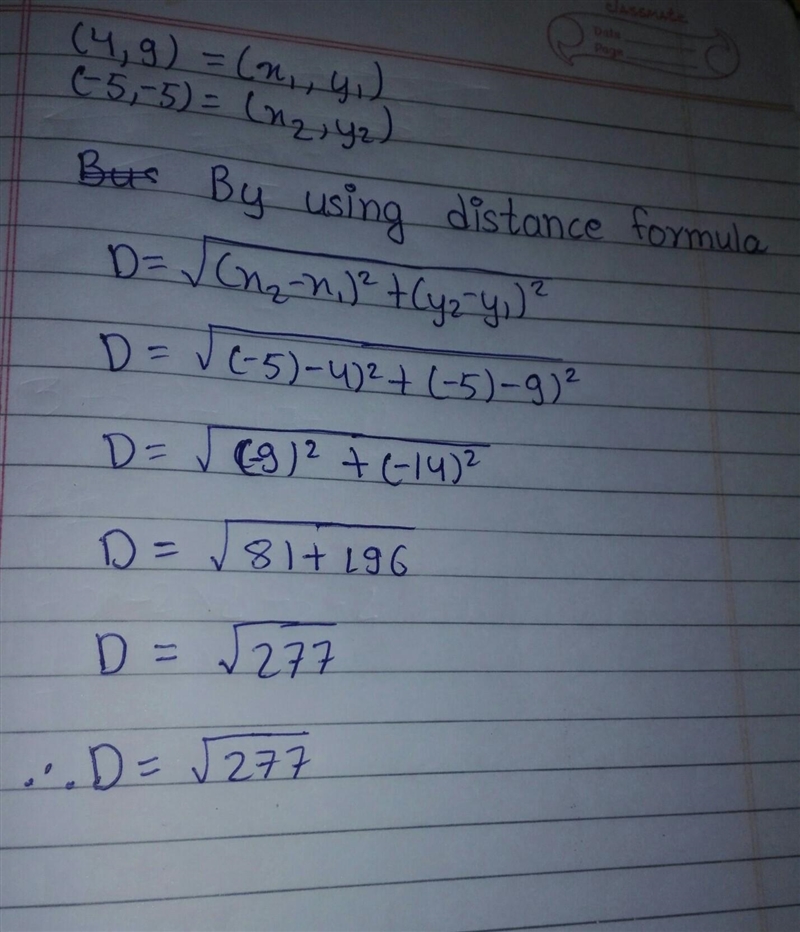 classmate
Date
Page
(4,9) = (x₁, y₁)
(-5,-5) = (x₂, y₂)
By using distance formula
D = √(x₂-x₁)² + (y₂-y₁)²
D = √(-5)-4)² + (-5)-9)²
D = √(-9)² + (-14)²
D = √81+196
D = √277
∴ D = √277